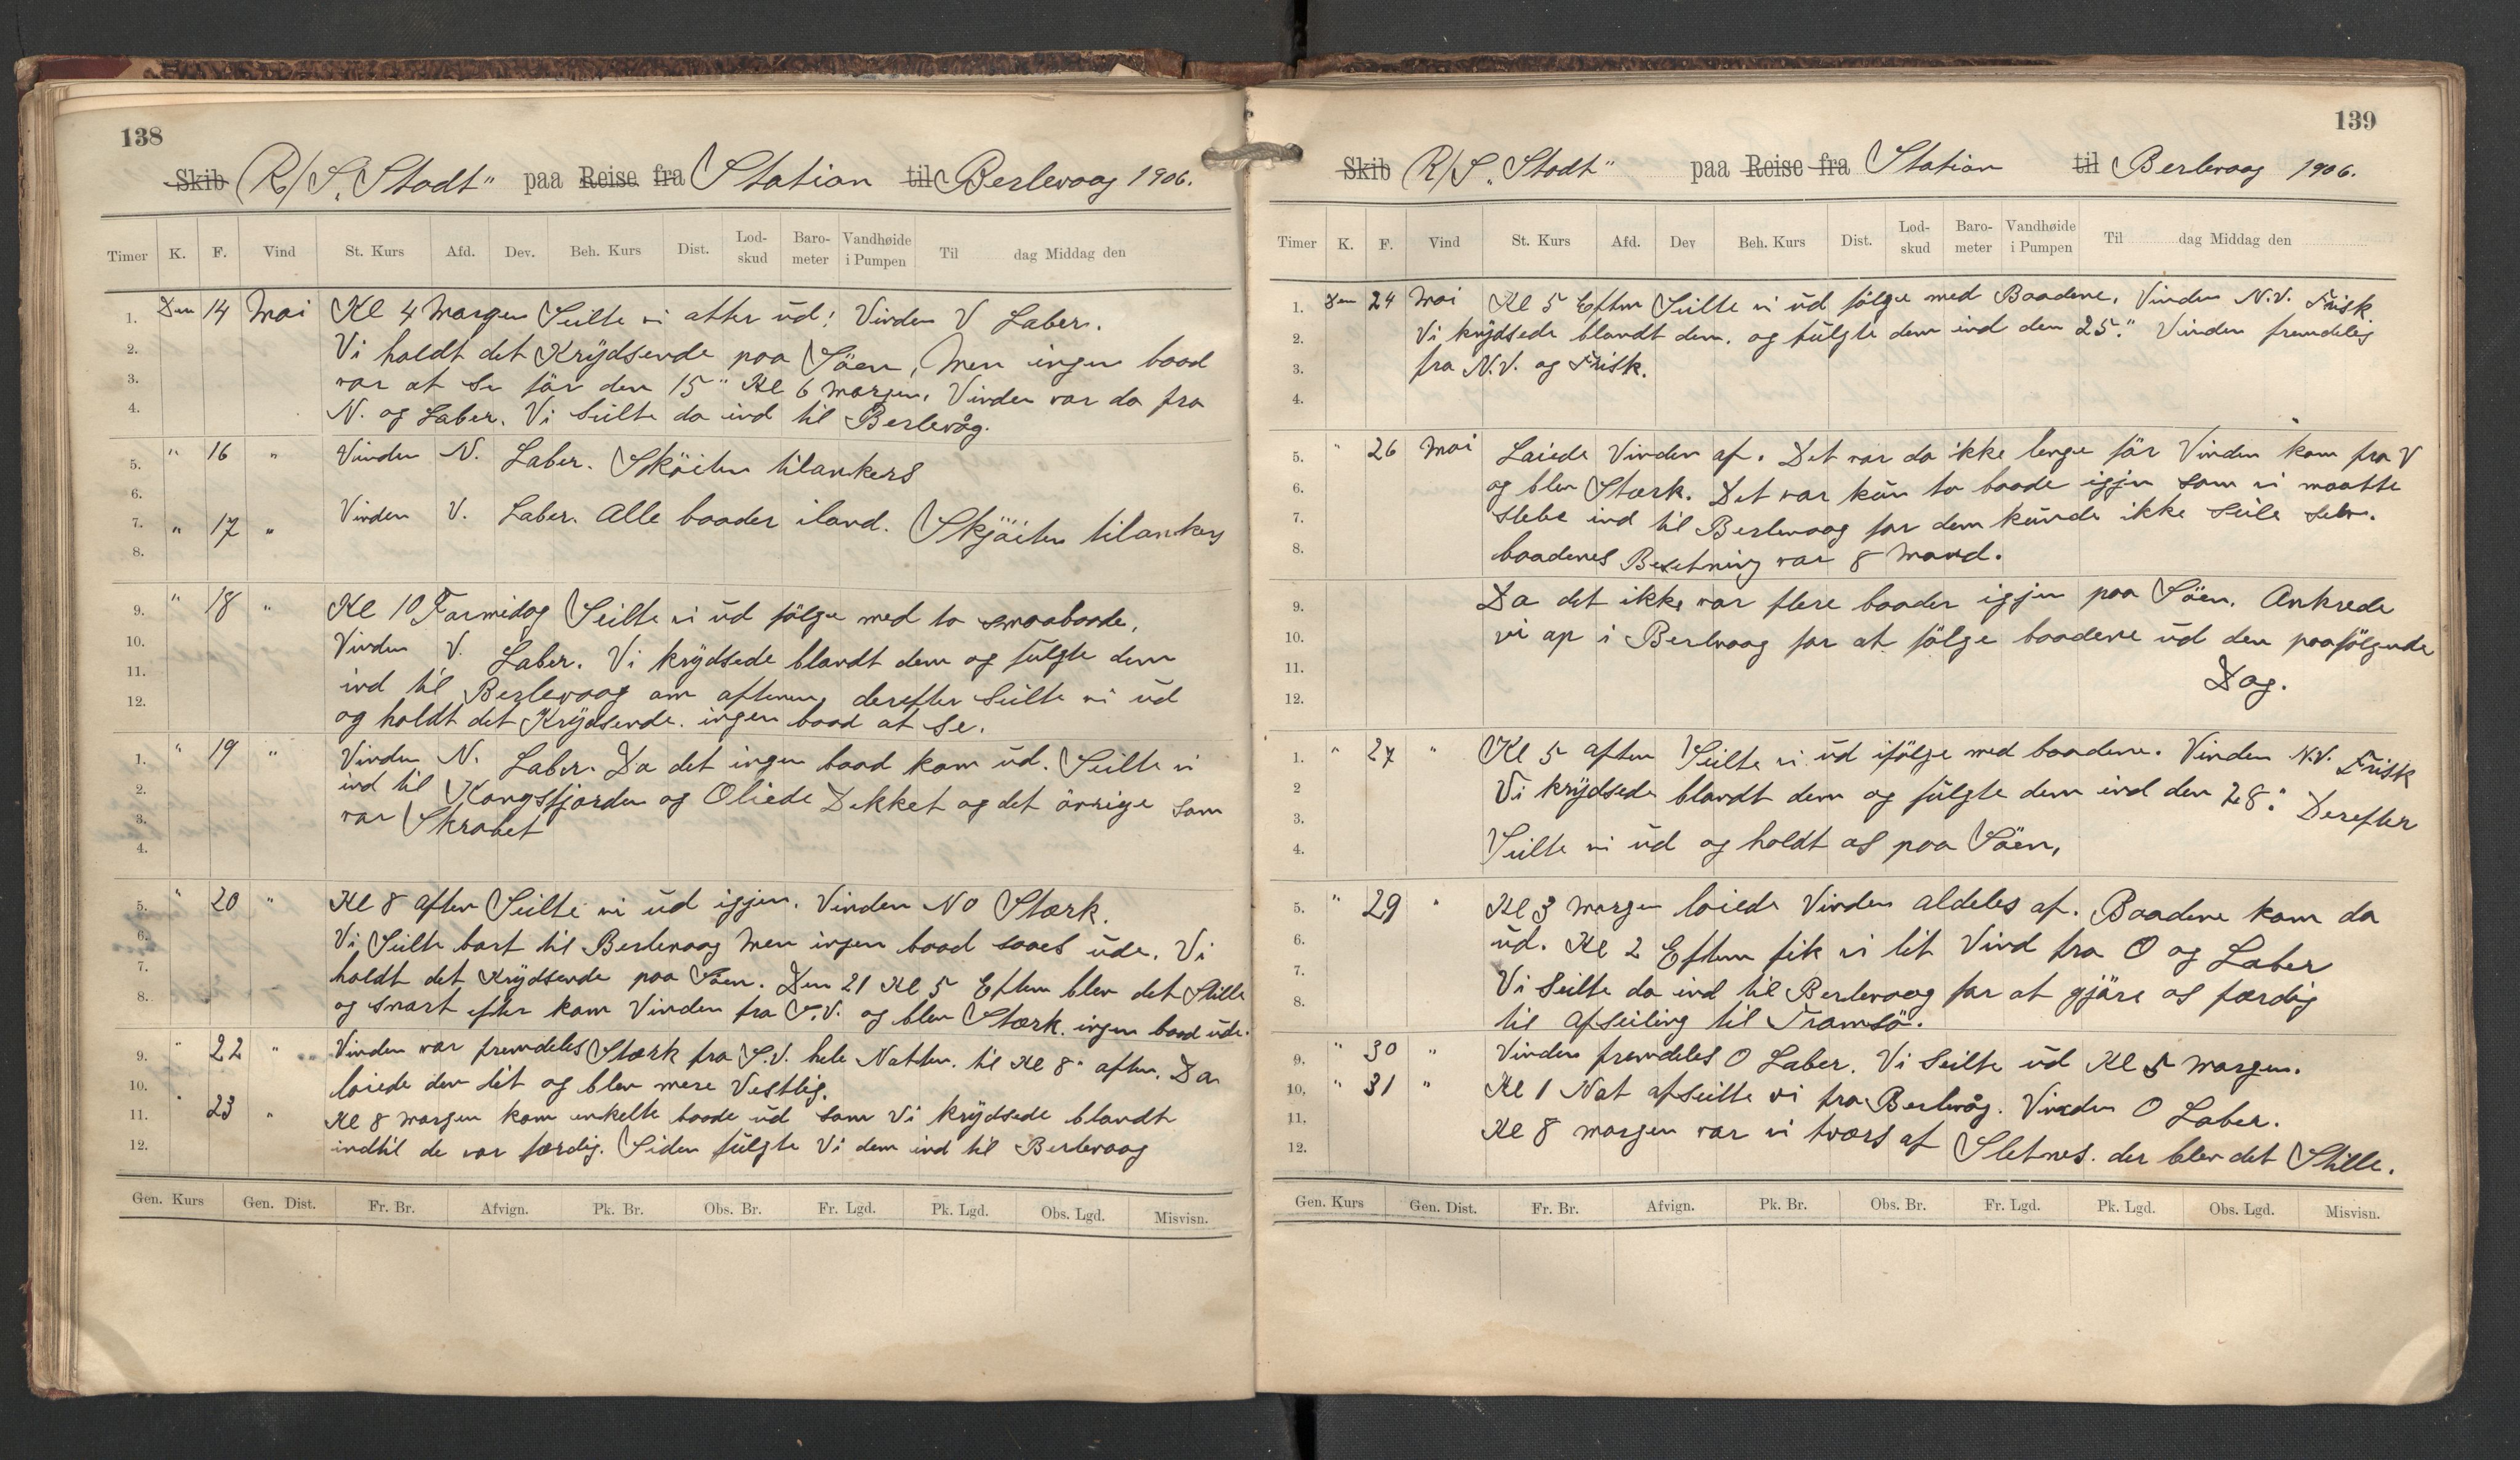 138
Skib R/S. "Stadt" paa Reise fra Station til Berlevaag 1906.
Timer K. F. Vind St. Kurs Afd. Dev. Beh. Kurs Dist. Lod-skud Baro-meter Vandhøide i Pumpen Til dag Middag den
1. Den 14 Mai Kl 4 Morgen Seilte vi atter ud! Vinden V Laber.
2. Vi holdt det Krydsende paa Söen, Men ingen baad
3. var at Se för den 15" Kl 6 morgen. Vinden var da fra
4. N. og Laber. Vi Seilte da ind til Berlevåg.
5. " 16 " Vinden N. Laber. Sköiten tilankers
6.
7. " 17 " Vinden V. Laber. Alle baader iland. Skjöiten tilankers
8.
9. " 18 " Kl 10 Formidag Seilte vi ud fölge med to smaabaade,
10. Vinden V. Laber. Vi krydsede blandt dem og fulgte dem
11. ind til Berlevaag om aftenen, derefter Seilte vi ud
12. og holdt det Krydsende. ingen baad at se.
1. " 19 " Vinden N. Laber. Da det ingen baad kom ud. Seilte vi
2. ind til Kongsfjorden og Oliede Dekket og det övrige som
3. var Skrabet
4.
5. " 20 " Kl 8 aften Seilte vi ud igjen. Vinden NO Stærk.
6. Vi Seilte bort til Berlevaag Men ingen baad saaes ude. Vi
7. holdt det Krydsende paa Söen. Den 21 Kl 5 Eftem blev det Stille
8. og snart efter kom Vinden fra S.V. og blev Stærk. ingen baad ude.
9. " 22 " Vinden var fremdeles Stærk fra S.V. hele Natten. til Kl 8" aften. Da
10. løiede den lit og blev mere Vestlig.
11. " 23 " Kl 8 morgen kom enkelte baade ud som Vi krydsede blandt
12. indtil de var færdig. Siden fulgte Vi dem ind til Berlevaag
Gen. Kurs Gen. Dist. Fr. Br. Afvign. Pk. Br. Obs. Br. Fr. Lgd. Pk. Lgd. Obs. Lgd. Misvisn.
139
Skib R/S "Stadt" paa Reise fra Station til Berlevaag 1906.
Timer K. F. Vind St. Kurs Afd. Dev Beh. Kurs Dist. Lod-skud Baro-meter Vandhøide i Pumpen Til dag Middag den
1. Den 24 Mai Kl 5 Eftem Seilte vi ud fölge med Baadene. Vinden N.V. Frisk.
2. Vi krydsede blandt dem. og fulgte dem ind den 25." Vinden fremdeles
3. fra N.V. og Frisk.
4.
5. " 26 Mai Løiede Vinden af. Det var da ikke lenge för Vinden kom fra V
6. og blev Stærk. Det var kun to baade igjen som vi maatte
7. slebe ind til Berlevaag for dem kunde ikke Seile selv.
8. baadenes Besetning var 8 Mand.
9. Da det ikke var flere baader igjen paa Söen. Ankrede
10. vi op i Berlevaag for at fölge baadene ud den paafölgende
11. Dag.
12.
1. " 27 " Kl 5 aften Seilte vi ud ifölge med baadene. Vinden N.V. Frisk
2 Vi krydsede blandt dem og fulgte dem ind den 28." Derefter
3.
4. Seilte vi ud og holdt os paa Söen,
5. " 29 " Kl 3 morgen løiede Vinden aldeles af. Baadene kom da
6. ud. Kl 2 Eftem fik vi lit Vind fra O og Laber
7. Vi Seilte da ind til Berlevaag for at gjöre os færdig
8. til afseiling til Tromsö.
9. " 30 " Vinden fremdeles O Laber. Vi Seilte ud Kl 5 morgen.
10. " 31 " Kl 1 Nat afseilte vi fra Berlevåg. Vinden O Laber.
11.
12. Kl 8 morgen var vi tvers af Sletnes. der blev det Stille.
Gen. Kurs Gen. Dist. Fr. Br. Afvign. Pk. Br. Obs. Br. Fr. Lgd. Pk. Lgd. Obs. Lgd. Misvisn.